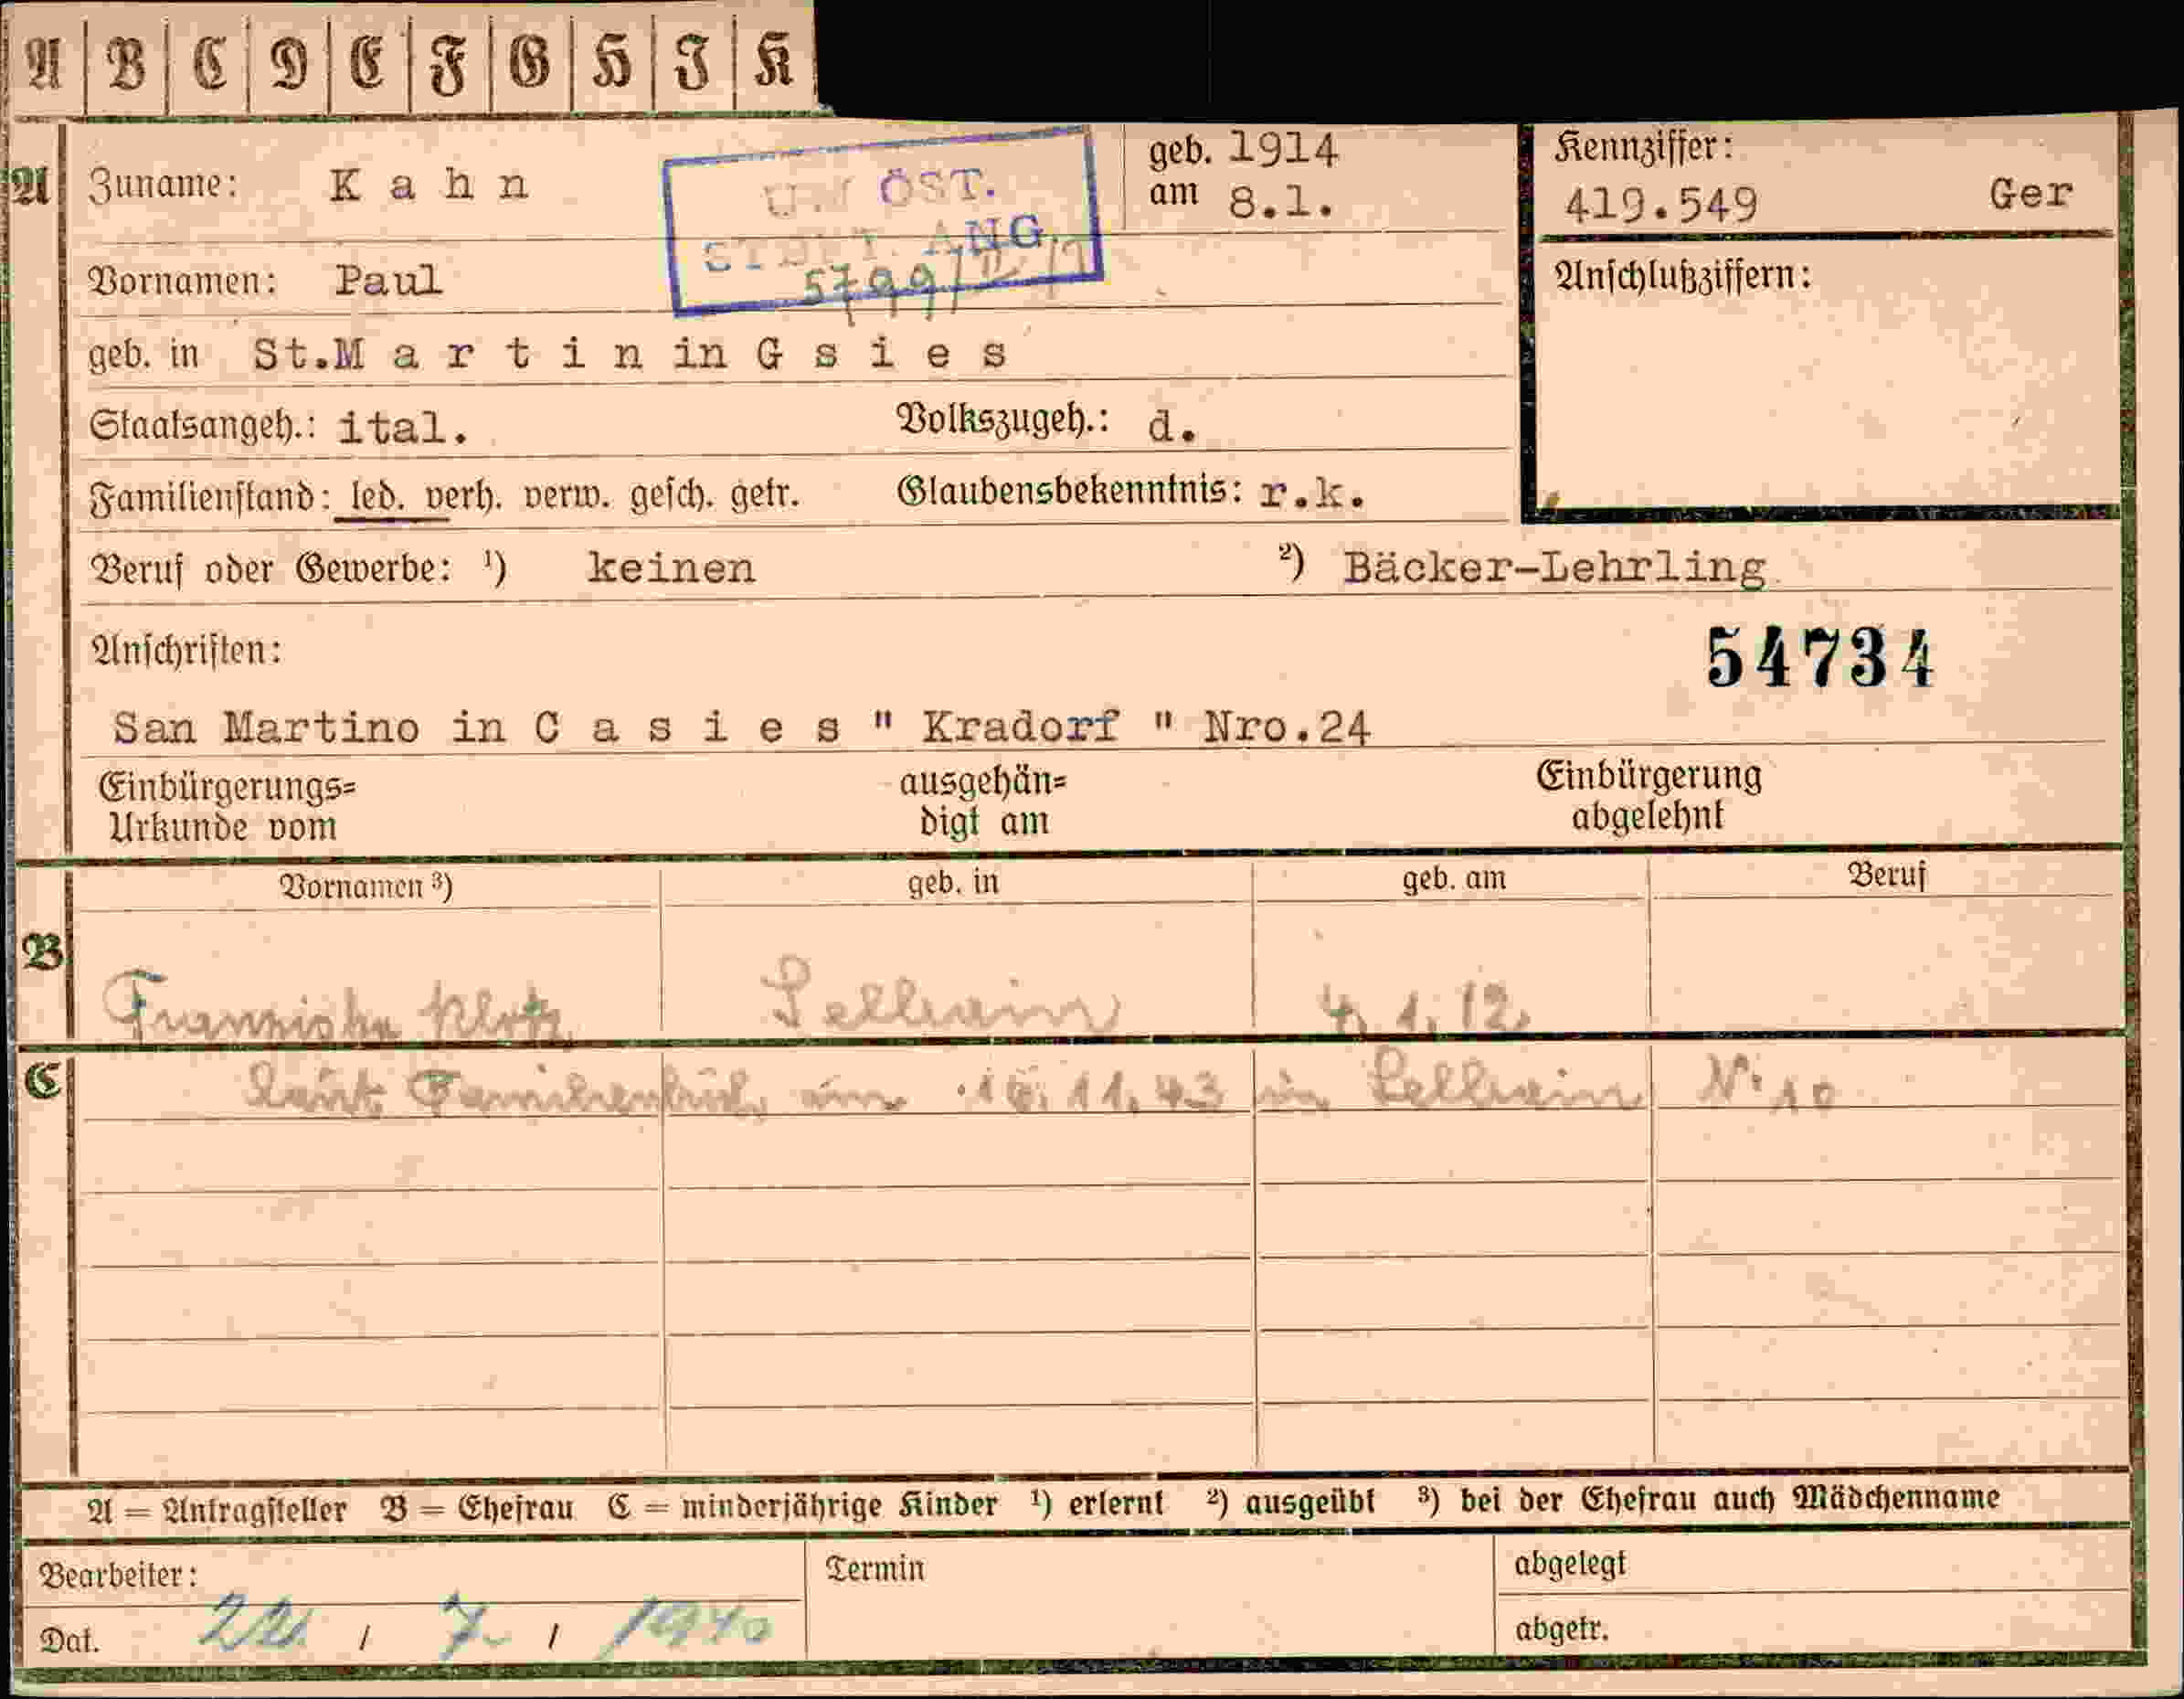 A B C D E F G H J K
A Zuname: Kahn
geb. 1914
am 8.1.
Kennziffer:
419.549 Ger
ÖST.
ANG.
5799/II/1
Vornamen: Paul
Anschlußziffern:
geb. in St.Martin in Gsies
Staatsangeh.: ital. Volkszugeh.: d.
Familienstand: led. verh. verw. gesch. getr. Glaubensbekenntnis: r.k.
Beruf oder Gewerbe: ¹) keinen ²) Bäcker-Lehrling
Anschriften:
54734
San Martino in Casies " Kradorf " Nro.24
Einbürgerungs=
Urkunde vom
ausgehän=
digt am
Einbürgerung
abgelehnt
Vornamen ³) geb. in geb. am Beruf
B
Franziska Klotz 4.1.12.
C laut Familienbuch am 16.11.43 in N: 10
A = Antragsteller B = Ehefrau C = minderjährige Kinder ¹) erlernt ²) ausgeübt ³) bei der Ehefrau auch Mädchenname
Bearbeiter:
Termin
abgelegt
Dat. 22. / 7. / 1940
abgetr.